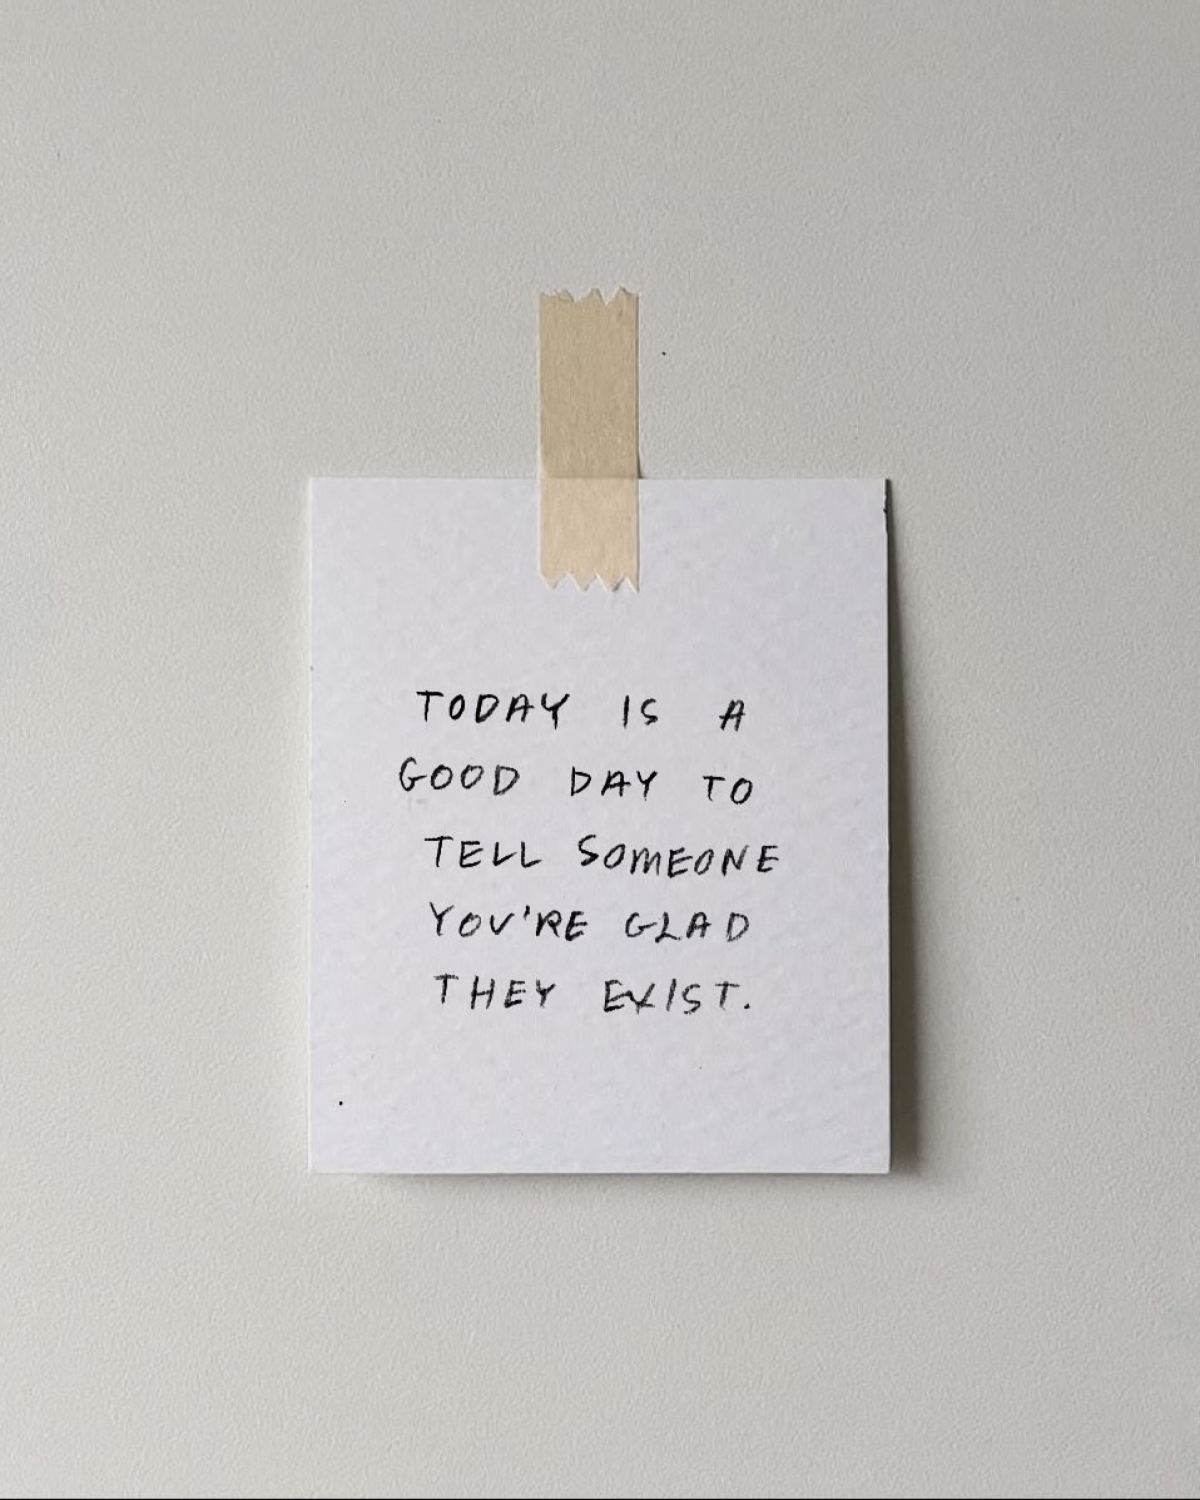 TODAY IS A
GOOD DAY TO
TELL SOMEONE
YOU'RE GLAD
THEY EXIST.